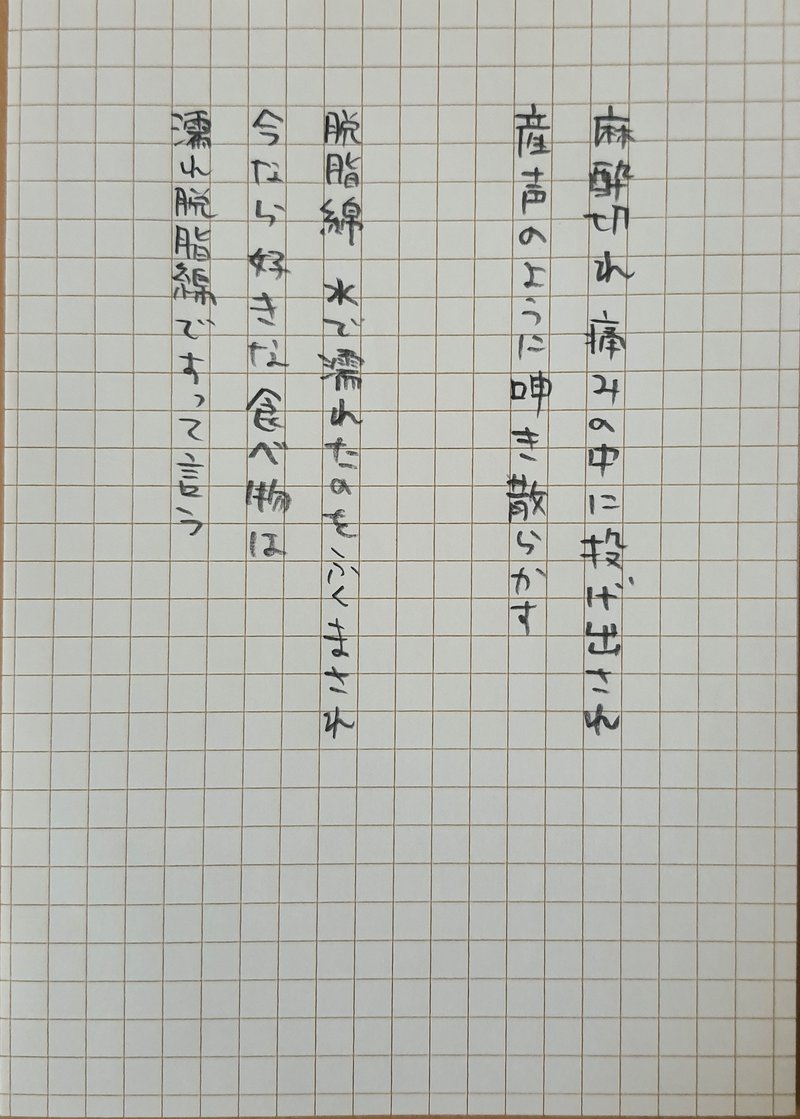 麻酔切れ 痛みの中に投げ出され
産声のように呻き散らかす
脱脂綿 水で濡れたのをふくまされ
今なら好きな食べ物は
濡れ脱脂綿ですって言う